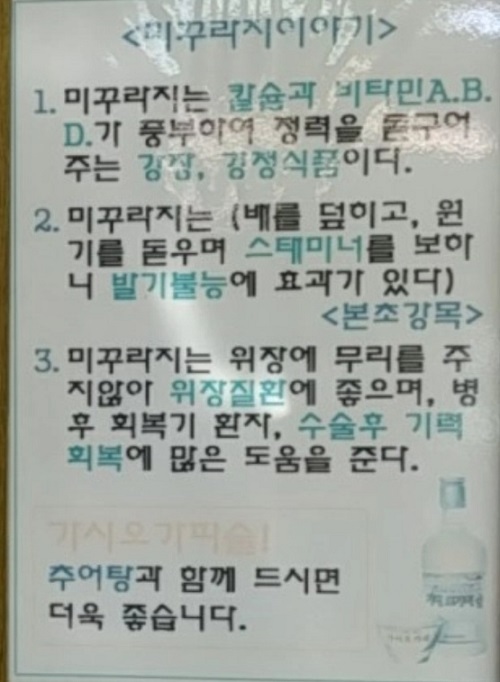 <미꾸라지이야기>
1. 미꾸라지는 칼슘과 비타민A.B.
D.가 풍부하여 정력을 돋구어
주는 강장, 강정식품이다.
2. 미꾸라지는 (배를 덮히고, 원
기를 돋우며 스태미너를 보하
니 발기불능에 효과가 있다)
<본초강목>
3. 미꾸라지는 위장에 무리를 주
지않아 위장질환에 좋으며, 병
후 회복기 환자, 수술후 기력
회복에 많은 도움을 준다.
가시오가피술!
추어탕과 함께 드시면
더욱 좋습니다.